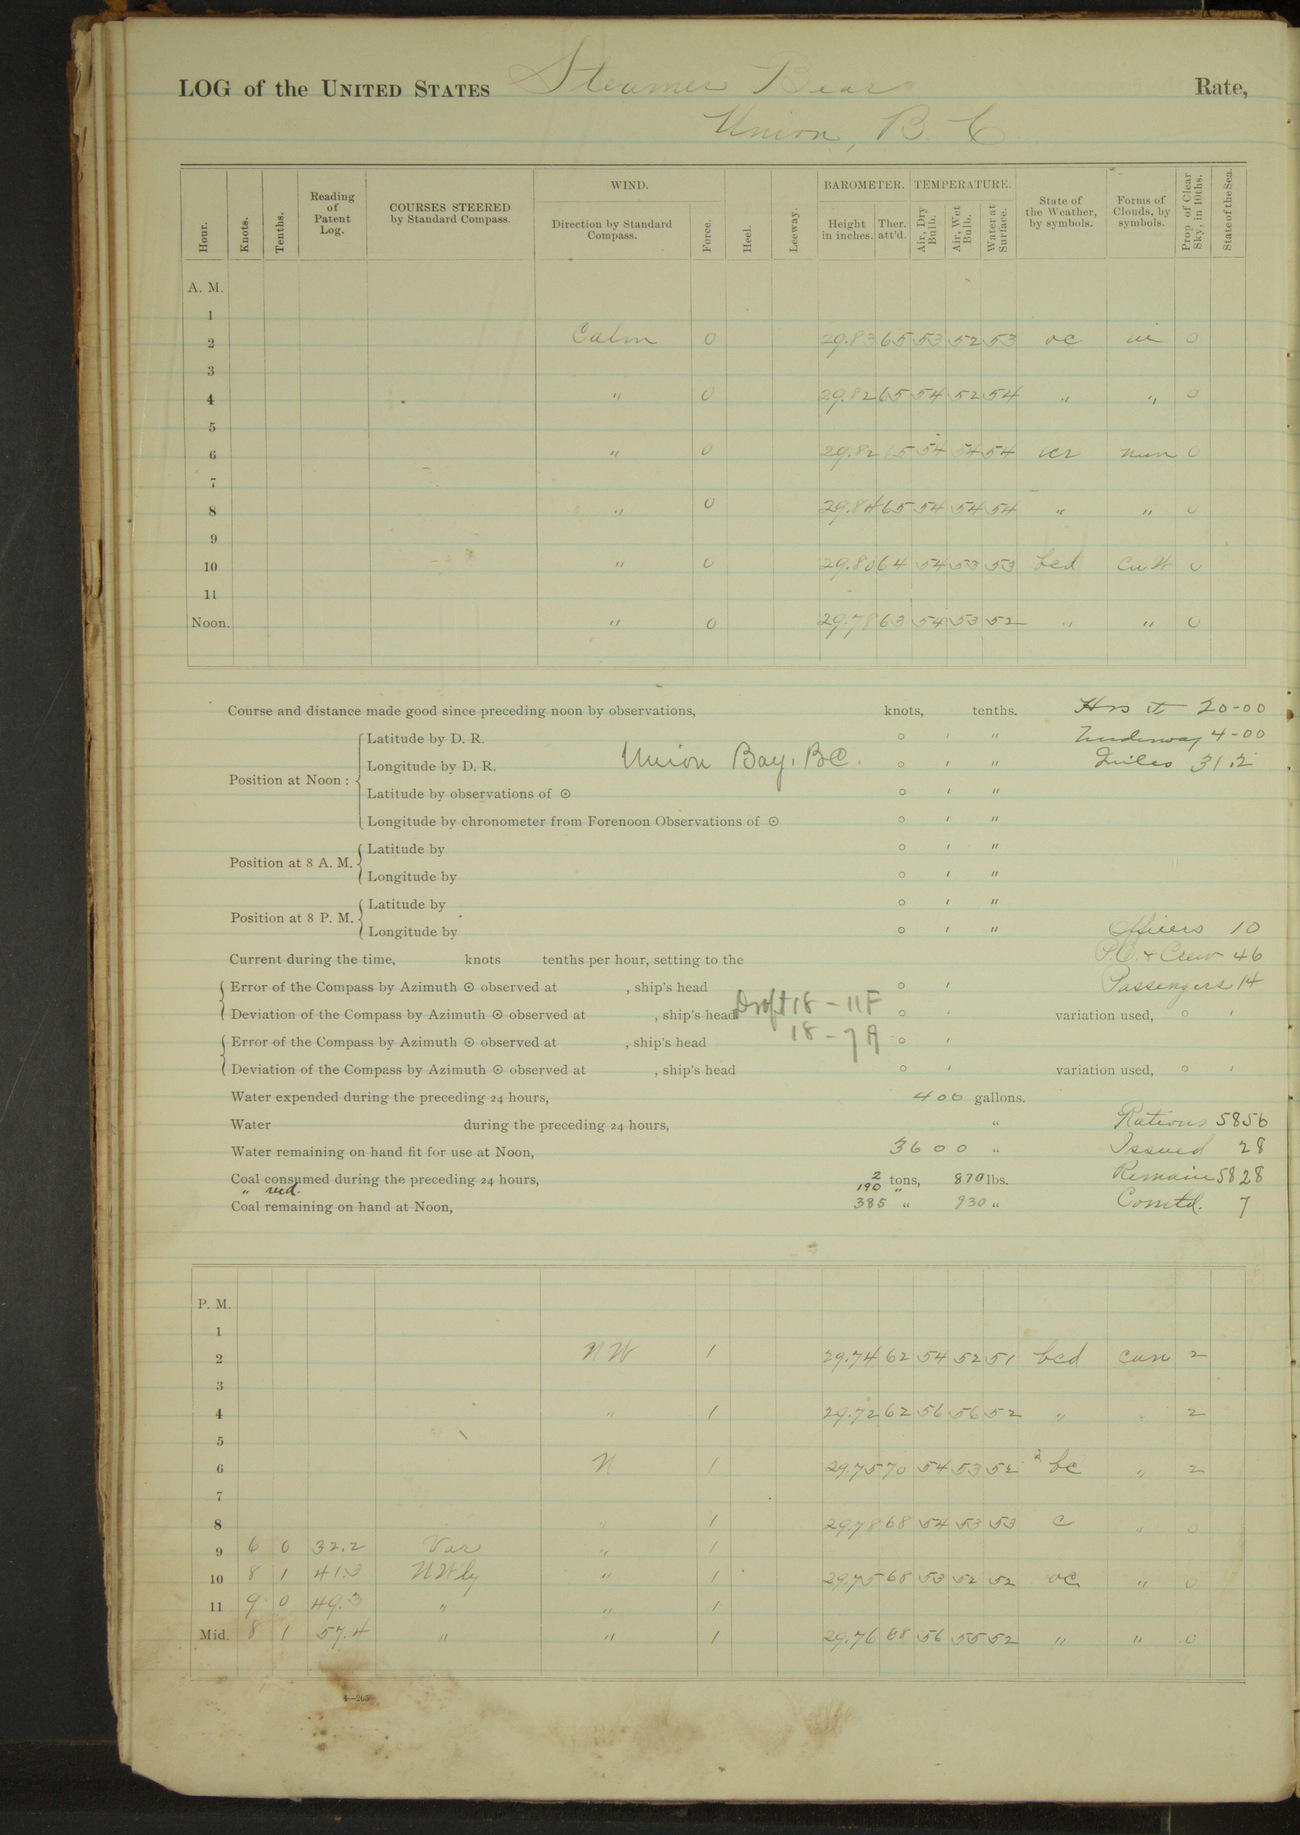 LOG of the UNITED STATES Steamer Bear Rate,
Union, B. C.
WIND. BAROMETER. TEMPERATURE.
Hour. Knots. Tenths. Reading of Patent Log. COURSES STEERED by Standard Compass. Direction by Standard Compass. Force. Heel. Leeway. Height in inches. Ther. att'd. Air, Dry Bulb. Air, Wet Bulb. Water at Surface. State of the Weather, by symbols. Forms of Clouds, by symbols. Prop. of Clear Sky, in 10ths. State of the Sea.
A. M.
1
2 Calm 0 29.83 65 53 52 53 oc 0
3
4 " 0 29.82 65 54 52 54 " " 0
5
6 " 0 29.82 65 54 54 54 nim 0
7
8 " 0 29.84 65 54 54 54 " " 0
9
10 " 0 29.80 64 54 53 53 bcd 0
11
Noon. " 0 29.78 63 54 53 52 " " 0
Course and distance made good since preceding noon by observations, knots, tenths. Hrs 20-00
Latitude by D. R. ° ′ ″ Underway 4-00
Position at Noon: Longitude by D. R. Union Bay. B.C. ° ′ ″ Miles 31.2
Latitude by observations of ☉ ° ′ ″
Longitude by chronometer from Forenoon Observations of ☉ ° ′ ″
Position at 8 A. M. Latitude by ° ′ ″
Longitude by ° ′ ″
Position at 8 P. M. Latitude by ° ′ ″
Longitude by ° ′ ″ Officers 10
Current during the time, knots tenths per hour, setting to the P.O. & Crew 46
Error of the Compass by Azimuth ☉ observed at , ship's head ° ′ Passengers 14
Deviation of the Compass by Azimuth ☉ observed at , ship's head Draft 18 - 11 F ° ′ variation used, ° ′
Error of the Compass by Azimuth ☉ observed at , ship's head 18 - 7 A ° ′
Deviation of the Compass by Azimuth ☉ observed at , ship's head ° ′ variation used, ° ′
Water expended during the preceding 24 hours, 400 gallons.
Water during the preceding 24 hours, " Rations 5856
Water remaining on hand fit for use at Noon, 3600 " Issued 28
Coal consumed during the preceding 24 hours, 2 tons, 870 lbs. Remain 5828
" recd. 190 "
Coal remaining on hand at Noon, 385 " 930 " Comtd. 7
P. M.
1
2 NW 1 29.74 62 54 52 51 bcd cum 2
3
4 " 1 29.72 62 56 56 52 " " 2
5
6 N 1 29.75 70 54 53 52 bc " 2
7
8 " 1 29.78 68 54 53 53 c " 0
9 6 0 32.2 Var " 1
10 8 1 41.3 NW'ly " 1 29.75 68 53 52 52 oc " 0
11 9 0 49.3 " " 1
Mid. 8 1 57.4 " " 1 29.76 68 56 55 52 " " 0